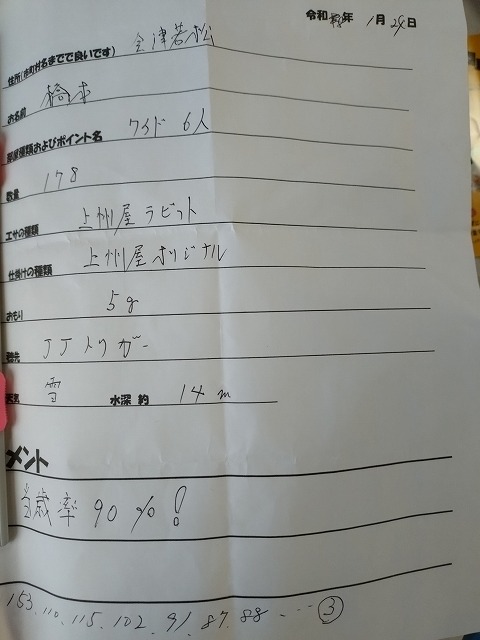 令和 年 1月 24日
住所(市町村名まででで良いです) 会津若松
お名前
部屋種類およびポイント名 ワイド 6人
数量 178
エサの種類 上州屋ラビット
仕掛けの種類 上州屋オリジナル
おもり 5g
穂先 JJトリガー
天気 雪 水深 約 14 m
メント
当歳率 90%!
153、110、115、102、91、87、88 … ③